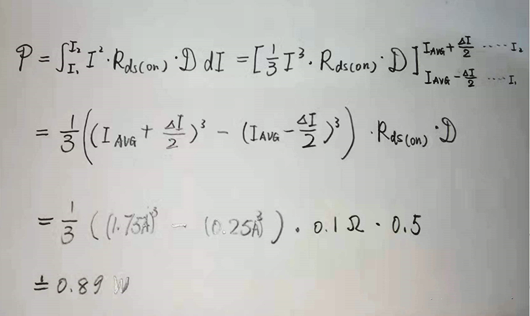 P = ∫_{I₁}^{I₂} I² · R_{ds(on)} · D dI = [⅓ I³ · R_{ds(on)} · D] ^{I_{AVG} + ΔI/2 ····· I₂} _{I_{AVG} − ΔI/2 ····· I₁}
= ⅓ ((I_{AVG} + ΔI/2)³ − (I_{AVG} − ΔI/2)³) · R_{ds(on)} · D
= ⅓ ((1.75A)³ − (0.25A)³) · 0.1Ω · 0.5
≐ 0.89 W